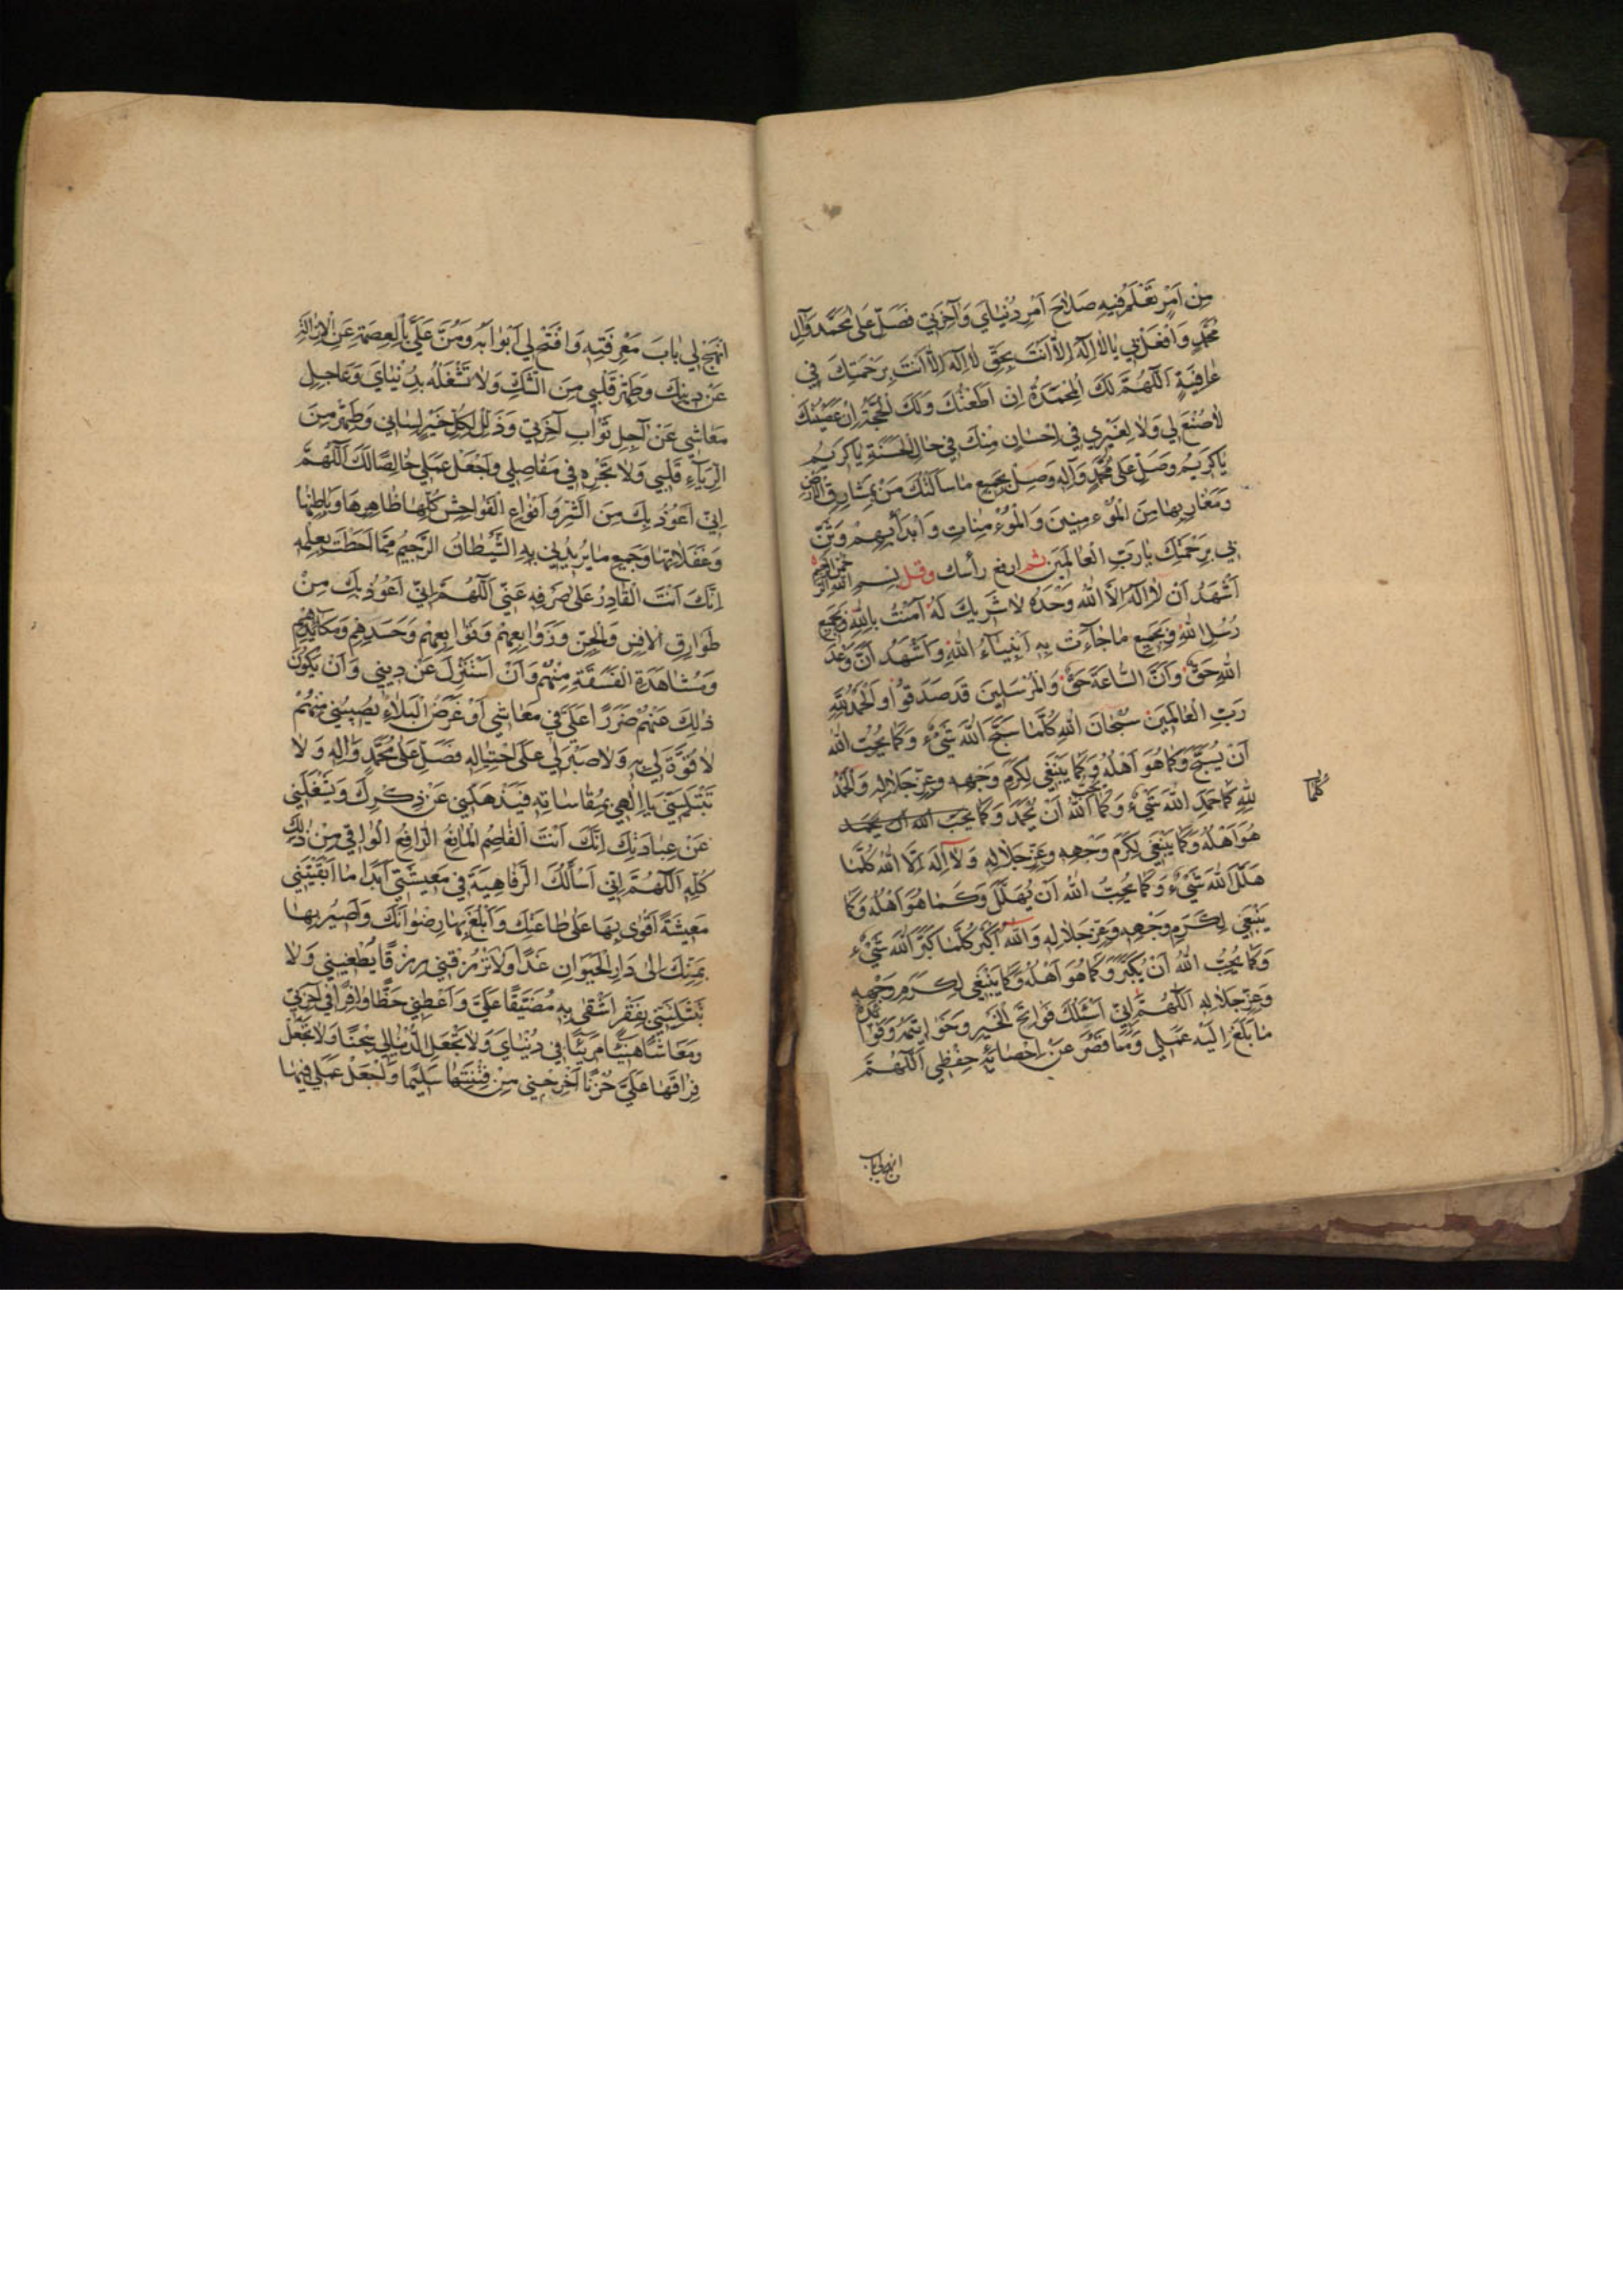 مِنْ اَمْرٍ تَعْلَمُ فيهِ صَلاحَ اَمْرِ دُنْيايَ وَآخِرَتي فَصَلِّ عَلى مُحَمَّدٍ وَآلِ
مُحَمَّدٍ وَافْعَلْ بي يا لا اِلهَ اِلاّ اَنْتَ بِحَقِّ لا اِلهَ اِلاّ اَنْتَ بِرَحْمَتِكَ في
عافِيَةٍ اَللّهُمَّ لَكَ الْمَحْمَدَةُ اِنْ اَطَعْتُكَ وَلَكَ الْحُجَّةُ اِنْ عَصَيْتُكَ
لا صُنْعَ لي وَلا لِغَيْري في اِحْسانٍ مِنْكَ في حالِ الْحَسَنَةِ يا كَريمُ
يا كَريمُ وَصَلِّ عَلى مُحَمَّدٍ وَآلِهِ وَصِلْ بِجَميعِ ما سَاَلْتُكَ مَنْ بِمَشارِقِ الاَرْضِ
وَمَغارِبِها مِنَ الْمُؤْمِنينَ وَالْمُؤْمِناتِ وَابْدَأْ بِهِمْ وَثَنِّ
بي بِرَحْمَتِكَ يا رَبَّ الْعالَمينَ ثم ارفع رأسك وقل بسم الله الرحمن الرحيم
اَشْهَدُ اَنْ لا اِلهَ اِلاَّ اللهُ وَحْدَهُ لا شَريكَ لَهُ آمَنْتُ بِاللهِ وَبِجَميعِ
رُسُلِ اللهِ وَبِجَميعِ ما جآءَتْ بِهِ اَنْبِيآءُ اللهِ وَاَشْهَدُ اَنَّ وَعْدَ
اللهِ حَقٌّ وَاَنَّ السّاعَةَ حَقٌّ وَالْمُرْسَلينَ قَدْ صَدَقُوا وَالْحَمْدُ لِلّهِ
رَبِّ الْعالَمينَ سُبْحانَ اللهِ كُلَّما سَبَّحَ اللهَ شَيْءٌ وَكَما يُحِبُّ اللهُ
اَنْ يُسَبَّحَ وَكَما هُوَ اَهْلُهُ وَكَما يَنْبَغي لِكَرَمِ وَجْهِهِ وَعِزِّ جَلالِهِ وَالْحَمْدُ
كُلَّما
لِلّهِ كَما حَمِدَ اللهَ شَيْءٌ وَكَما يُحِبُّ اللهُ اَنْ يُحْمَدَ وَكَما يحب الله ان يحمد
هُوَ اَهْلُهُ وَكَما يَنْبَغي لِكَرَمِ وَجْهِهِ وَعِزِّ جَلالِهِ وَلا اِلهَ اِلاَّ اللهُ كُلَّما
هَلَّلَ اللهَ شَيْءٌ وَكَما يُحِبُّ اللهُ اَنْ يُهَلَّلَ وَكَما هُوَ اَهْلُهُ وَكَما
يَنْبَغي لِكَرَمِ وَجْهِهِ وَعِزِّ جَلالِهِ وَاللهُ اَكْبَرُ كُلَّما كَبَّرَ اللهَ شَيْءٌ
وَكَما يُحِبُّ اللهُ اَنْ يُكَبَّرَ وَكَما هُوَ اَهْلُهُ وَكَما يَنْبَغي لِكَرَمِ وَجْهِهِ
وَعِزِّ جَلالِهِ اَللّهُمَّ اِنّي اَسْئَلُكَ فَواتِحَ الْخَيْرِ وَخَواتِمَهُ وَفَوائِدَهُ
ما بَلَغَ اِلَيْهِ عَمَلي وَما قَصُرَ عَنْ اِحْصائِهِ حِفْظي اَللّهُمَّ
انهج لي باب
انْهَجْ لي بابَ مَعْرِفَتِهِ وَافْتَحْ لي اَبْوابَهُ وَمُنَّ عَلَيَّ بِالْعِصْمَةِ عَنِ الاِزالَةِ
عَنْ دينِكَ وَطَهِّرْ قَلْبي مِنَ الشَّكِّ وَلا تَشْغَلْهُ بِدُنْيايَ وَعاجِلِ
مَعاشي عَنْ آجِلِ ثَوابِ آخِرَتي وَذَلِّلْ لِكُلِّ خَيْرٍ لِساني وَطَهِّرْ مِنَ
الرِّيآءِ قَلْبي وَلا تُجْرِهِ في مَفاصِلي وَاجْعَلْ عَمَلي خالِصًا لَكَ اَللّهُمَّ
اِنّي اَعُوذُ بِكَ مِنَ الشَّرِّ وَاَنْواعِ الْفَواحِشِ كُلِّها ظاهِرِها وَباطِنِها
وَغَفَلاتِها وَجَميعِ ما يُريدُني بِهِ الشَّيْطانُ الرَّجيمُ مِمّا اَحَطْتَ بِعِلْمِهِ
اِنَّكَ اَنْتَ الْقادِرُ عَلى صَرْفِهِ عَنّي اَللّهُمَّ اِنّي اَعُوذُ بِكَ مِنْ
طَوارِقِ الاِنْسِ وَالْجِنِّ وَزَوابِعِهِمْ وَتَوابِعِهِمْ وَحَسَدِهِمْ وَمَكائِدِهِمْ
وَمُشاهَدَةِ الْفَسَقَةِ مِنْهُمْ وَاَنْ اُسْتَزَلَّ عَنْ ديني وَاَنْ يَكُونَ
ذلِكَ مِنْهُمْ ضَرَرًا عَلَيَّ في مَعاشي اَوْ عَرَضُ الْبَلاءِ يُصيبُني مِنْهُمْ
لا قُوَّةَ لي بِهِ وَلا صَبْرَ لي عَلَى احْتِمالِهِ فَصَلِّ عَلى مُحَمَّدٍ وَآلِهِ وَلا
تَبْتَلِيَنّي يا اِلهي بِمُقاساتِهِ فَيُذْهِلَني عَنْ ذِكْرِكَ وَيَشْغَلَني
عَنْ عِبادَتِكَ اِنَّكَ اَنْتَ الْعاصِمُ الْمانِعُ الرّافِعُ الْواقي مِنْ ذلِكَ
كُلِّهِ اَللّهُمَّ اِنّي اَسْأَلُكَ الرَّفاهِيَةَ في مَعيشَتي اَبَدًا ما اَبْقَيْتَني
مَعيشَةً اَقْوى بِها عَلى طاعَتِكَ وَاَبْلُغُ بِها رِضْوانَكَ وَاَصيرُ بِها
بِمَنِّكَ اِلى دارِ الْحَيَوانِ غَدًا وَلا تَرْزُقْني رِزْقًا يُطْغيني وَلا
تَبْتَلِيَنّي بِفَقْرٍ اَشْقى بِهِ مُضَيَّقًا عَلَيَّ وَاَعْطِني حَظًّا وافِرًا في آخِرَتي
وَمَعاشًا هَنيئًا مَريئًا في دُنْيايَ وَلا تَجْعَلِ الدُّنْيا لي سِجْنًا وَلا تَجْعَلْ
فِراقَها عَلَيَّ حُزْنًا اَخْرِجْني مِنْ فِتْنَتِها سَليمًا وَاجْعَلْ عَمَلي فيها